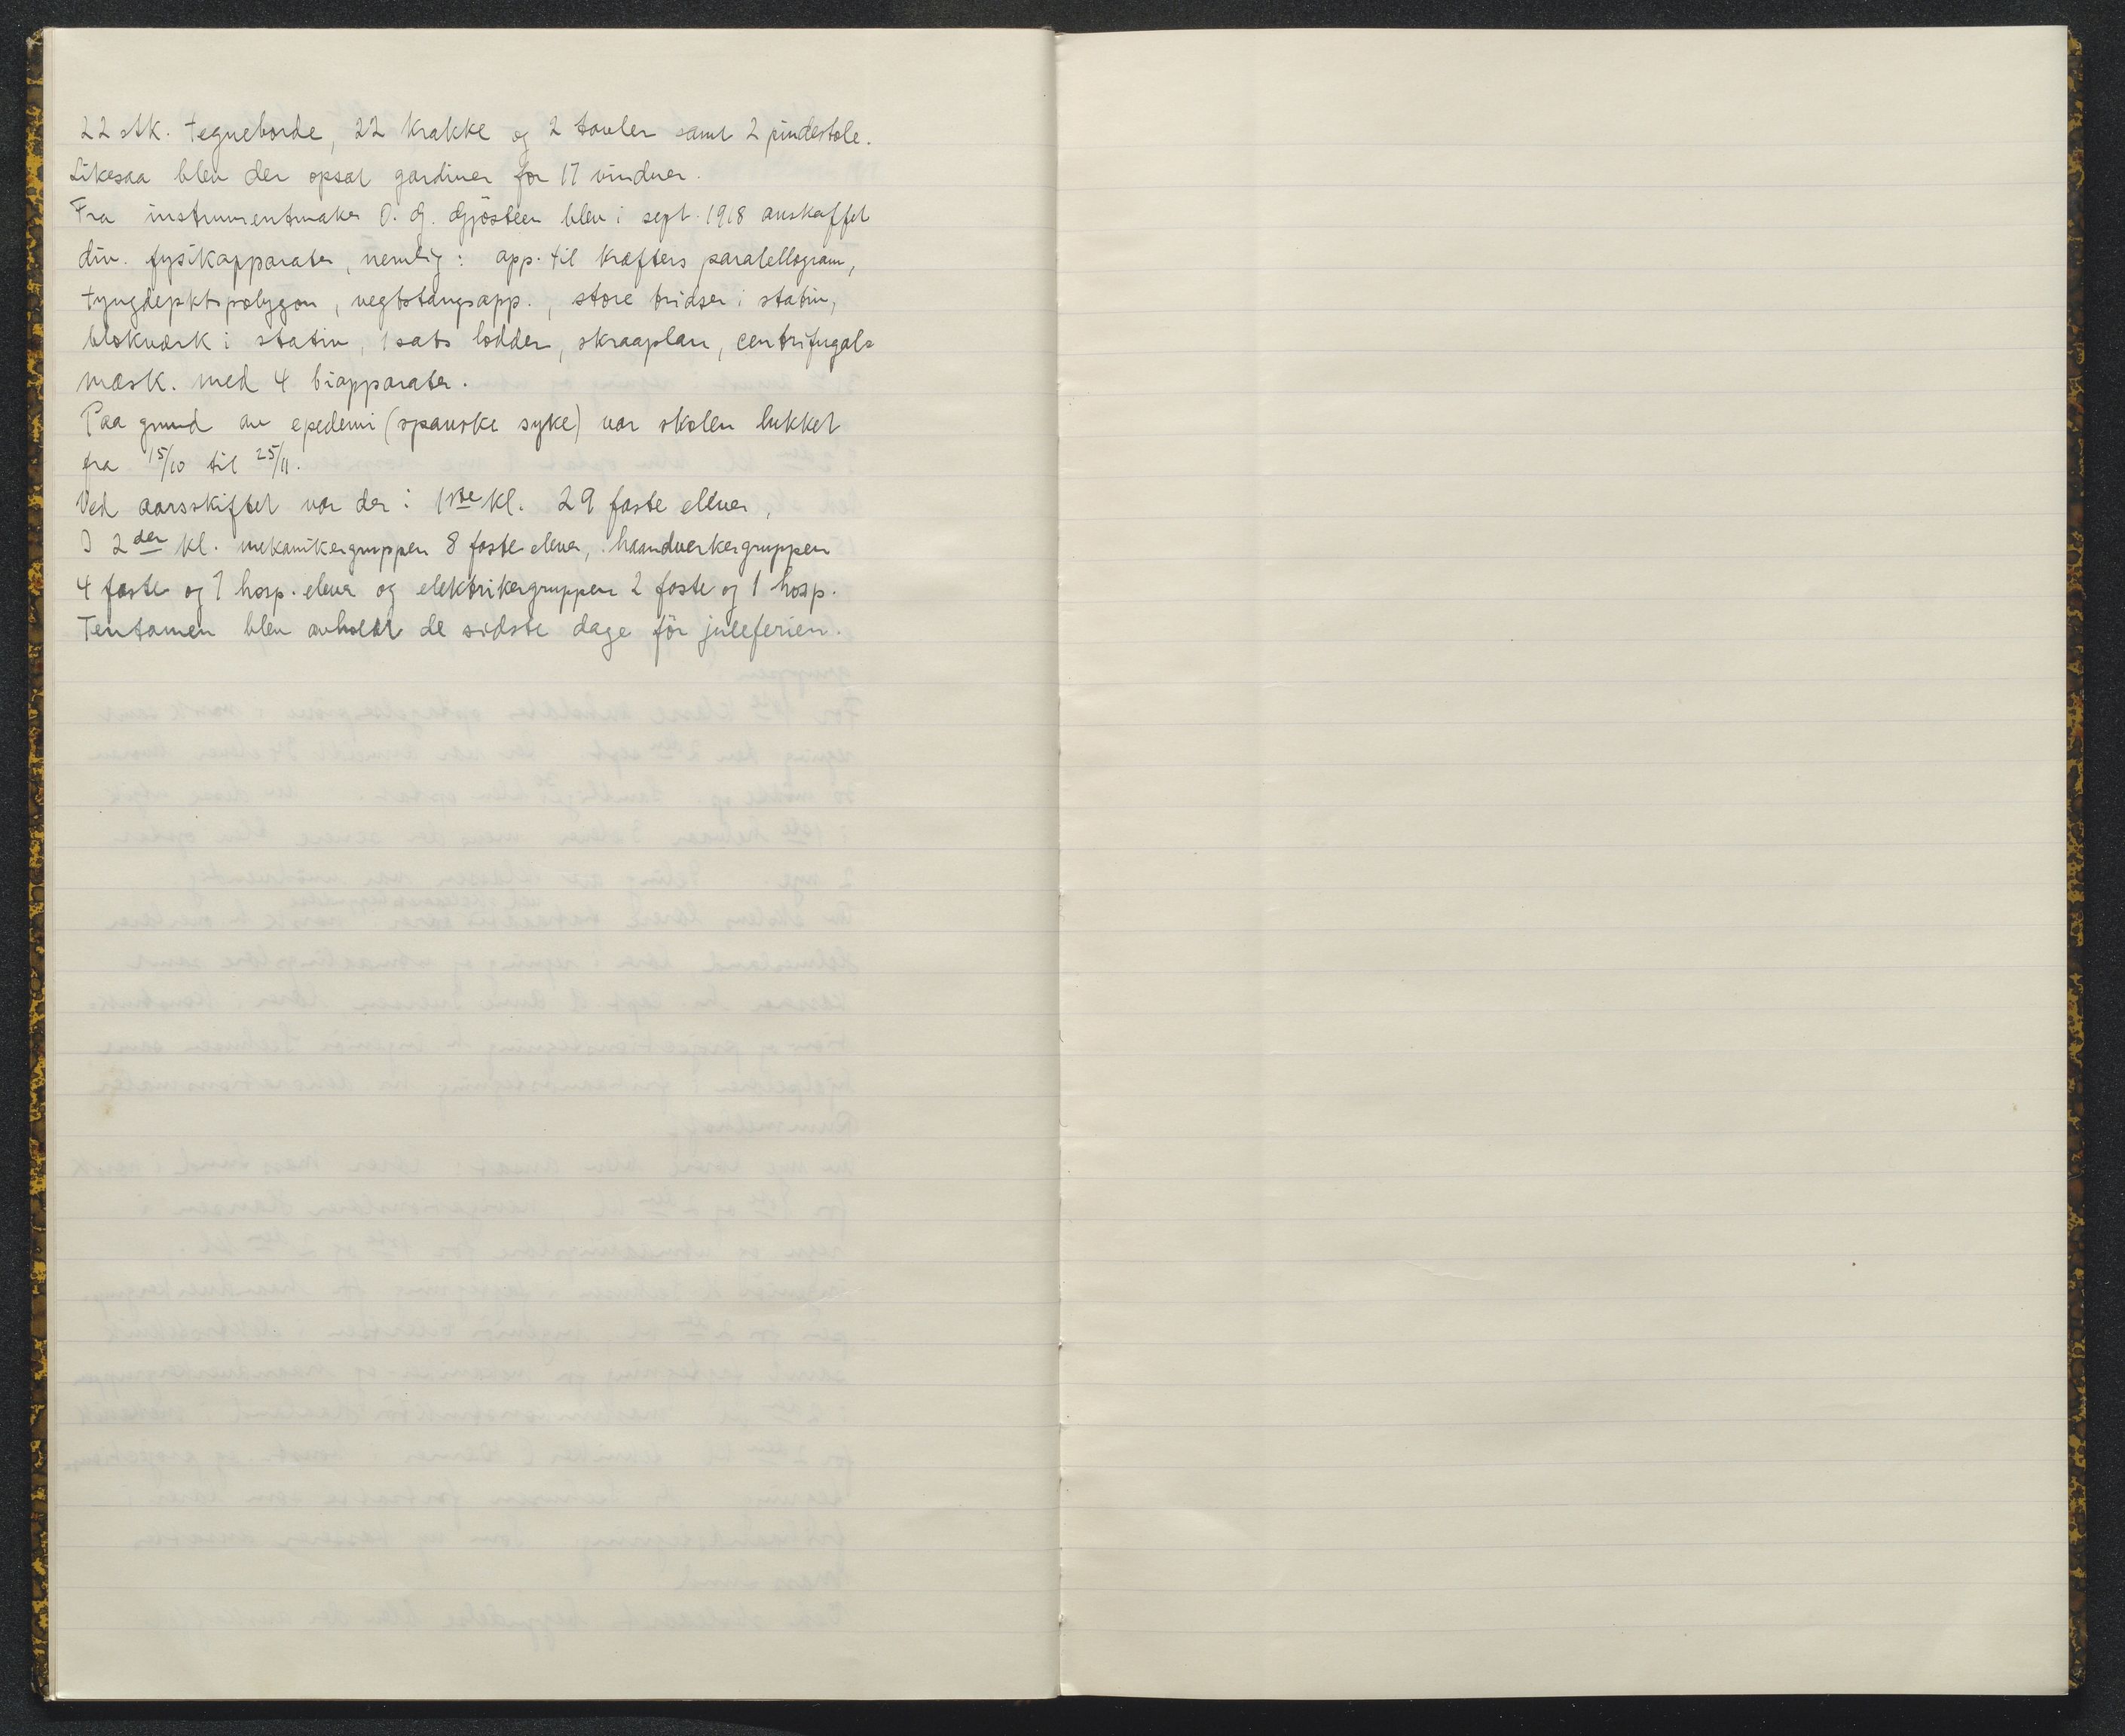 22 stk. tegneborde, 22 krakke og 2 tavler samt 2 pindestole.
Likesaa blev der opsat gardiner for 17 vinduer.
Fra instrumentmaker O. G. Gjøsteen blev i sept. 1918 anskaffet
div. fysikapparater, nemlig: app. til kræfters paralellogram,
tyngdepktspolygon, vegtstangsapp., store tridser i stativ,
blokværk i stativ, 1 sats lodder, skraaplan, centrifugal=
mask. med 4 biapparater.
Paa grund av epedemi (spanske syke) var skolen lukket
fra 15/10 til 25/11.
Ved aarsskiftet var der i 1ste kl. 29 faste ellver,
I 2den kl. mekanikergruppen 8 faste elever, haandverkergruppen
4 faste og 1 hosp. elever og elektrikergruppen 2 faste og 1 hosp.
Tentamen blev avholdt de sidste dage för juleferien.